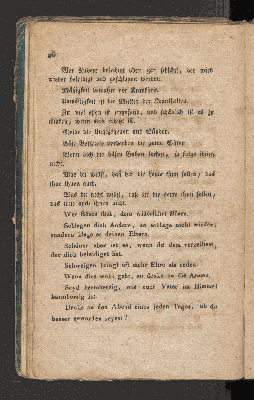 96
Wer Andere beleidigt oder gar schlägt, der wird
wieder beleidigt und geschlagen werden.
Mäßigkeit bewahret vor Krankheit.
Unmäßigkeit ist die Mutter der Krankheiten.
Zu viel essen ist ungesund, und schädlich ist es zu
trinken, wenn man erhitzt ist.
Meide die Ungezogenen und Sünder.
Böse Beispiele verderben die guten Sitten.
Wenn dich die bösen Buben locken, so folge ihnen
nicht.
Was du willst, daß dir die Leute thun sollen, das
thue ihnen auch.
Was du nicht willst, daß dir die Leute thun sollen,
das thue auch ihnen nicht.
Wer Böses thut, dem widerfährt Böses.
Schlagen dich Andere, so schlage nicht wieder;
sondern klage es deinen Eltern.
Schöner aber ist es, wenn du dem verzeihest,
der dich beleidiget hat.
Schweigen bringt oft mehr Ehre als reden.
Wenn dirs wohl geht, so denke an die Armen.
Seyd barmherzig, wie euer Vater im Himmel
barmherzig ist.
Denke an dem Abend eines jeden Tages, ob du
besser geworden seyest?